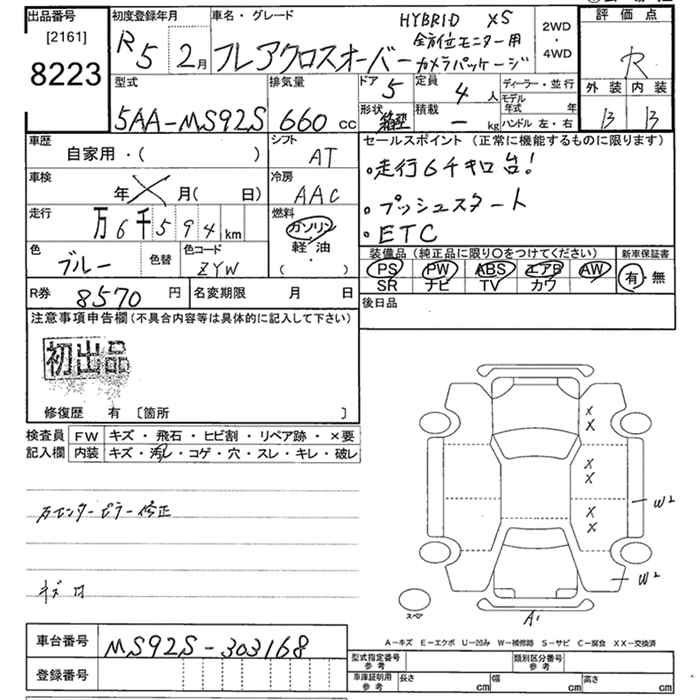 出品番号 初度登録年月 車名・グレード 評価点
[2161]
8223
R5 2月
フレアクロスオーバー
HYBRID XS
全方位モニター用
カメラパッケージ
2WD
・
4WD
R
外装 内装
B B
型式 排気量 ドア 5 定員 4人 ディーラー・並行
モデル年式 年
5AA-MS92S 660cc 形状 積載 - kg ハンドル 左・右
車歴 シフト セールスポイント (正常に機能するものに限ります)
自家用・( ) AT
・走行6千キロ台!
車検 冷房
年 月( 日) AAC
・プッシュスタート
走行 燃料
万6千594km ガソリン
・ETC
軽油
・
( )
色 ブルー 色替 色コード ZYW
装備品 (純正品に限り○をつけてください) 新車保証書
PS PW ABS エアB AW 有・無
SR ナビ TV カワ
R券 8570円 名変期限 月 日
後日品
注意事項申告欄(不具合内容等は具体的に記入して下さい)
初出品
修復歴 有 [箇所 ]
検査員 FW キズ・飛石・ヒビ割・リペア跡・×要
記入欄 内装 キズ・汚れ・コゲ・穴・スレ・キレ・破レ
X
X
X
X
X
X
W2
W2
センターピラー修正
キズ
スペア
A1
A-キズ E-エクボ U-凹み W-補修跡 S-サビ C-腐食 XX-交換済
車台番号 MS92S-303168
登録番号
型式指定番号 参考 類別区分番号 参考
車庫証明用 参考 長さ cm 幅 cm 高さ cm